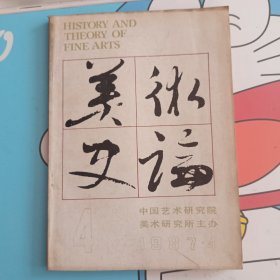 HISTORY AND
THEORY OF
FINE ARTS
美術
史論
4
中国艺术研究院
美术研究所主办
1987·4